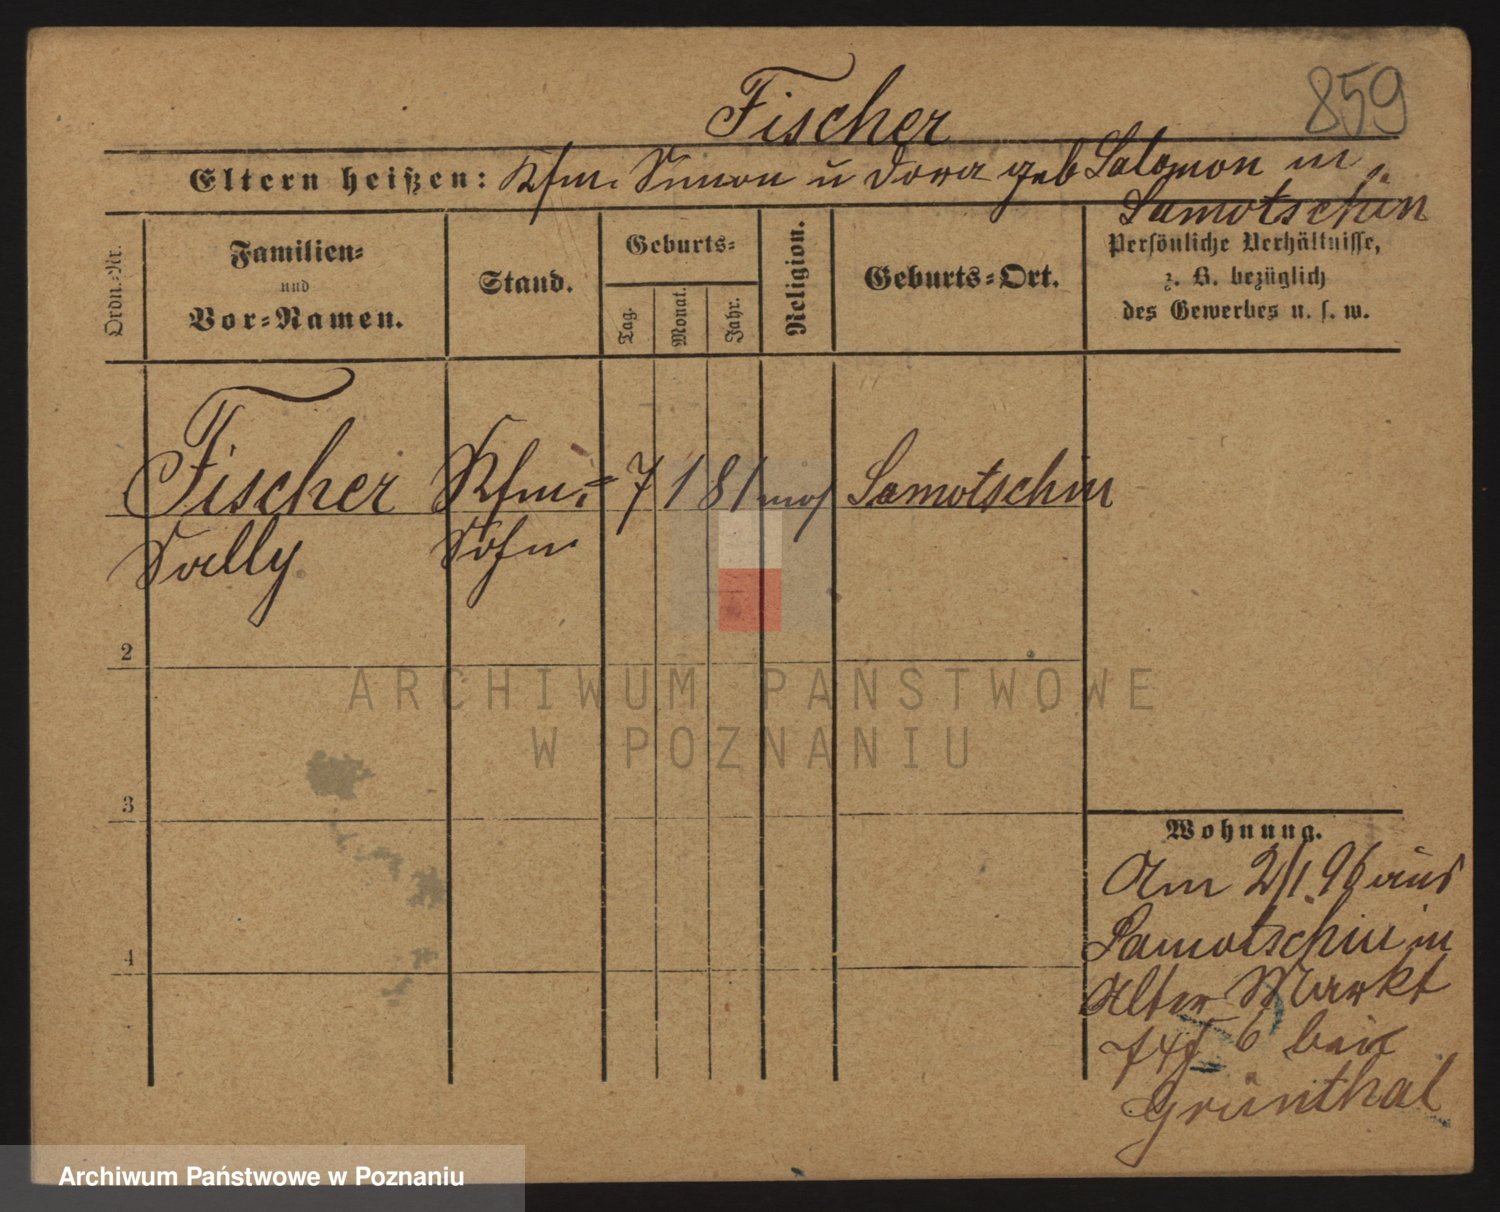 859
Fischer
Eltern heißen: Kfm. Simon u Dora geb Salomon in
Samotschin
Ordn.-Nr.
Familien-
und
Vor-Namen.
Stand.
Geburts-
Tag.
Monat.
Jahr.
Religion.
Geburts-Ort.
Persönliche Verhältnisse,
z. B. bezüglich
des Gewerbes u. s. w.
Fischer Kfm.= 7 1 81 mos Samotschin
Sally Sohn
2
3
4
ARCHIWUM PAŃSTWOWE
W POZNANIU
Wohnung.
Am 2/1 96 aus
Samotschin in
Alter Markt
bei
Grünthal
Archiwum Państwowe w Poznaniu